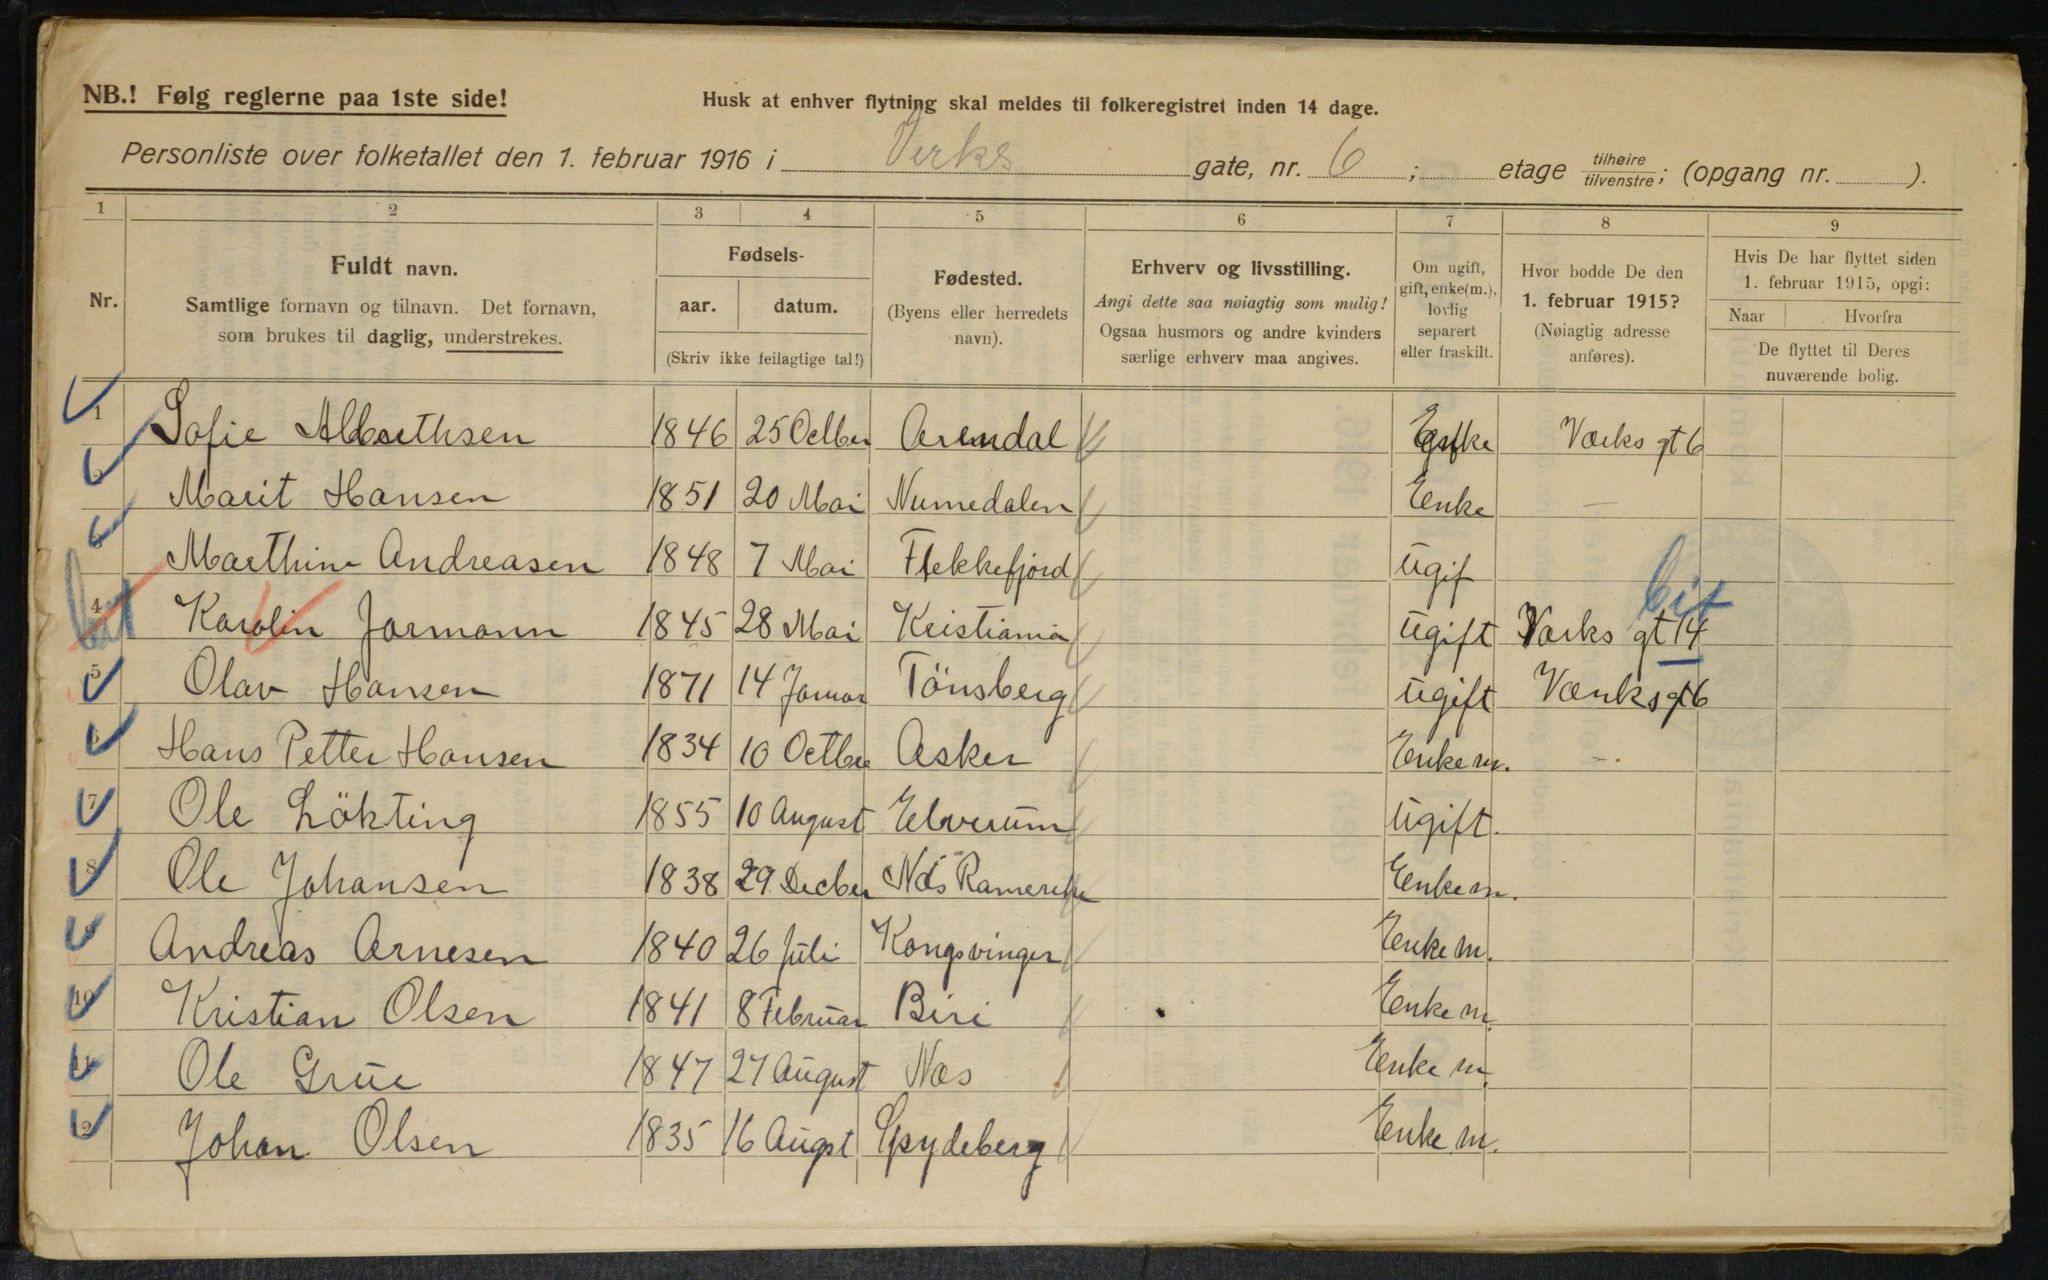 NB.! Følg reglerne paa 1ste side!
Husk at enhver flytning skal meldes til folkeregistret inden 14 dage.
Personliste over folketallet den 1. februar 1916 i Verks gate, nr. 6 ; etage tilhøire/tilvenstre; (opgang nr. ).
1 2 3 4 5 6 7 8 9
Nr.
Fuldt navn.
Samtlige fornavn og tilnavn. Det fornavn,
som brukes til daglig, understrekes.
Fødsels-
aar. datum.
(Skriv ikke feilagtige tal!)
Fødested.
(Byens eller herredets
navn).
Erhverv og livsstilling.
Angi dette saa nøiagtig som mulig!
Ogsaa husmors og andre kvinders
særlige erhverv maa angives.
Om ugift,
gift, enke(m.),
lovlig
separert
eller fraskilt.
Hvor bodde De den
1. februar 1915?
(Nøiagtig adresse
anføres).
Hvis De har flyttet siden
1. februar 1915, opgi:
Naar Hvorfra
De flyttet til Deres
nuværende bolig.
1 Sofie 1846 25 Octber Arendal Værks gt 6
2 Marit Hansen 1851 20 Mai Numedalen Enke —
3 Marthine Andreasen 1848 7 Mai Flekkefjord ugif
4 Karolin Jormann 1845 28 Mai Kristiania ugift Værks gt 14
5 Olav Hansen 1871 14 Januar Tönsberg ugift Værks gt 6
6 Hans Petter Hansen 1834 10 Octber Asker Enke m. —
7 Ole Lökting 1855 10 August Elverum ugift.
8 Ole Johansen 1838 29 Decber Nds Ramerike Enke m.
9 Andreas Arnesen 1840 26 Juli Kongsvinger Enke m.
10 Kristian Olsen 1841 8 Februar Biri Enke m.
11 Ole Grue 1847 27 August Næs Enke m.
12 Johan Olsen 1835 16 Augst Spydeberg Enke m.